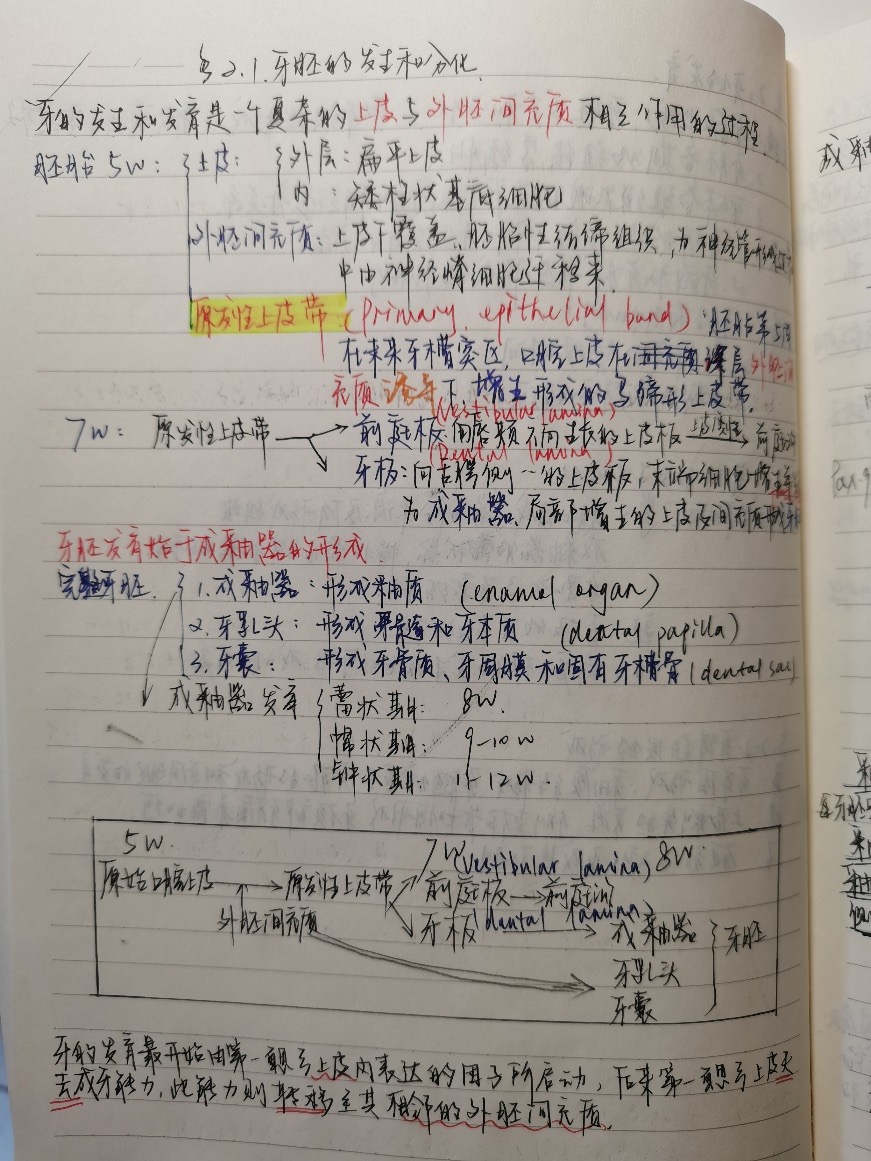 §2.1.牙胚的发生和分化.
牙的发生和发育是一个复杂的上皮与外胚间充质相互作用的过程.
胚胎5W: 上皮: 外层:扁平上皮
内:矮柱状基底细胞
外胚间充质:上皮下覆盖、胚胎性结缔组织,为神经管形成过程
中由神经嵴细胞迁移来.
原发性上皮带 (Primary epithelial band):胚胎第5周
在未来牙槽突区,口腔上皮在深层外胚间
充质诱导下,增生形成的马蹄形上皮带.
(vestibular lamina)
7W: 原发性上皮带 前庭板:向唇颊方向生长的上皮板 前庭沟
(Dental lamina)
牙板:向舌侧一的上皮板,末端细胞增生
为成釉器.局部增生的上皮及间充质形成牙胚
牙胚发育始于成釉器的形成.
完整牙胚 1.成釉器:形成釉质 (enamel organ)
2.牙乳头:形成牙髓和牙本质 (dental papilla)
3.牙囊: 形成牙骨质、牙周膜和固有牙槽骨(dental sac)
成釉器发育 蕾状期: 8W.
帽状期: 9-10W
钟状期: 11-12W.
5W. 7W (vestibular lamina) 8W.
原始口腔上皮→原发性上皮带 前庭板→前庭沟
外胚间充质 牙板 (dental lamina) → 成釉器 牙胚
牙乳头
牙囊
牙的发育最开始由第一鳃弓上皮内表达的因子所启动,后来第一鳃弓上皮失
去成牙能力,此能力则转移至其相邻的外胚间充质.
成釉